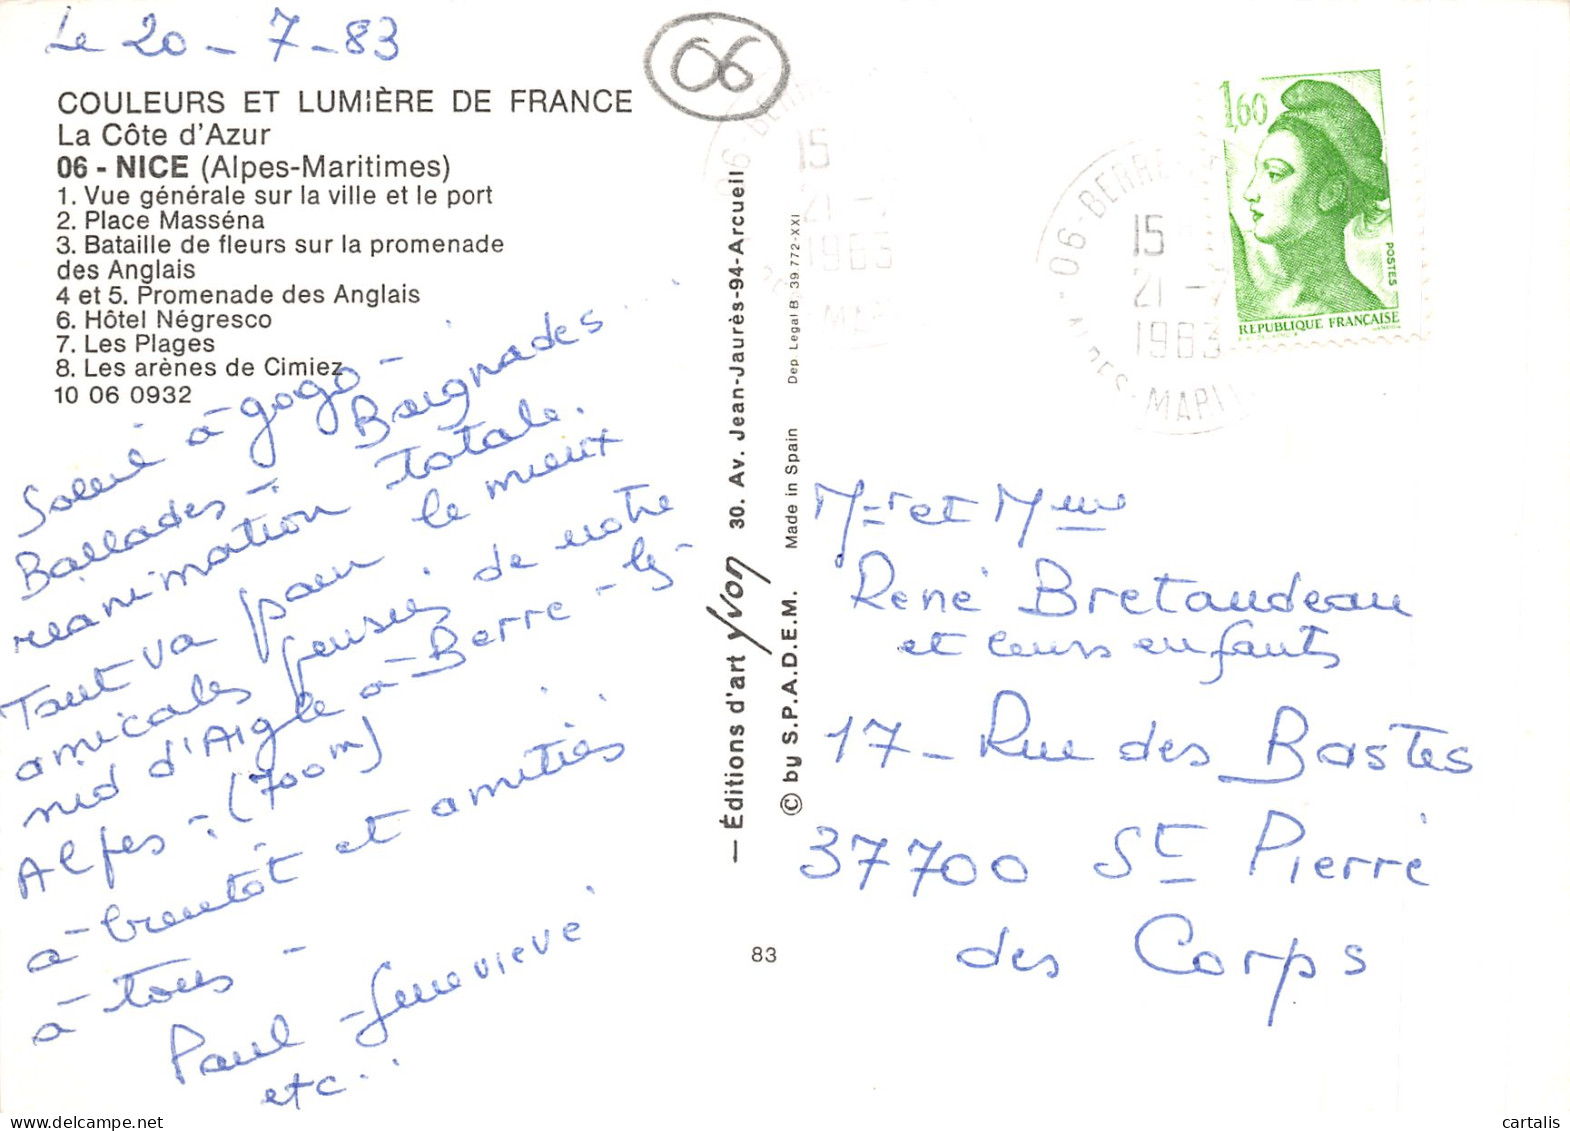 Le 20 - 7 - 83
06
COULEURS ET LUMIÈRE DE FRANCE
La Côte d'Azur
06 - NICE (Alpes-Maritimes)
1. Vue générale sur la ville et le port
2. Place Masséna
3. Bataille de fleurs sur la promenade
des Anglais
4 et 5. Promenade des Anglais
6. Hôtel Négresco
7. Les Plages
8. Les arènes de Cimiez
10 06 0932
Soleil à gogo -
Ballades - Baignades...
réanimation totale.
Tout va pour le mieux
amicales pensées de notre
nid d'Aigle à - Berre - les -
Alpes - (700m)
à - bientôt et amitiés
à - tous -
Paul - Geneviève
etc...
— Éditions d'art Yvon 30. Av. Jean-Jaurès-94-Arcueil
© by S.P.A.D.E.M. Made in Spain Dep Legal B 39 772-XXI
83
15
21 - 7
1983
06 - BERRE
15
21 - 7
1983
ALPES-MARIT
1,60
POSTES
REPUBLIQUE FRANÇAISE
Mr et Mme
René Bretaudeau
et leurs enfants
17 - Rue des Bastes
37700 St Pierre
des Corps
cartalis